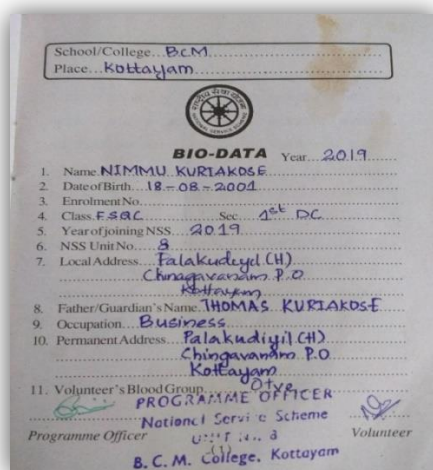 School/College...BCM
Place...Kottayam
राष्ट्रीय सेवा योजना
NATIONAL SERVICE SCHEME
BIO-DATA Year...2019
1. Name NIMMU KURIAKOSE
2. Date of Birth 18-08-2001
3. Enrolment No.
4. Class FSQC Sec 1st DC
5. Year of joining NSS 2019
6. NSS Unit No. 8
7. Local Address Palakudiyil (H)
Chingavanam P.O
Kottayam
8. Father/Guardian's Name THOMAS KURIAKOSE
9. Occupation Business
10. Permanent Address Palakudiyil (H)
Chingavanam P.O
Kottayam
11. Volunteer's Blood Group O+ve
PROGRAMME OFFICER
National Service Scheme
Programme Officer UNIT No. 8 Volunteer
(1)
B. C. M. College, Kottayam